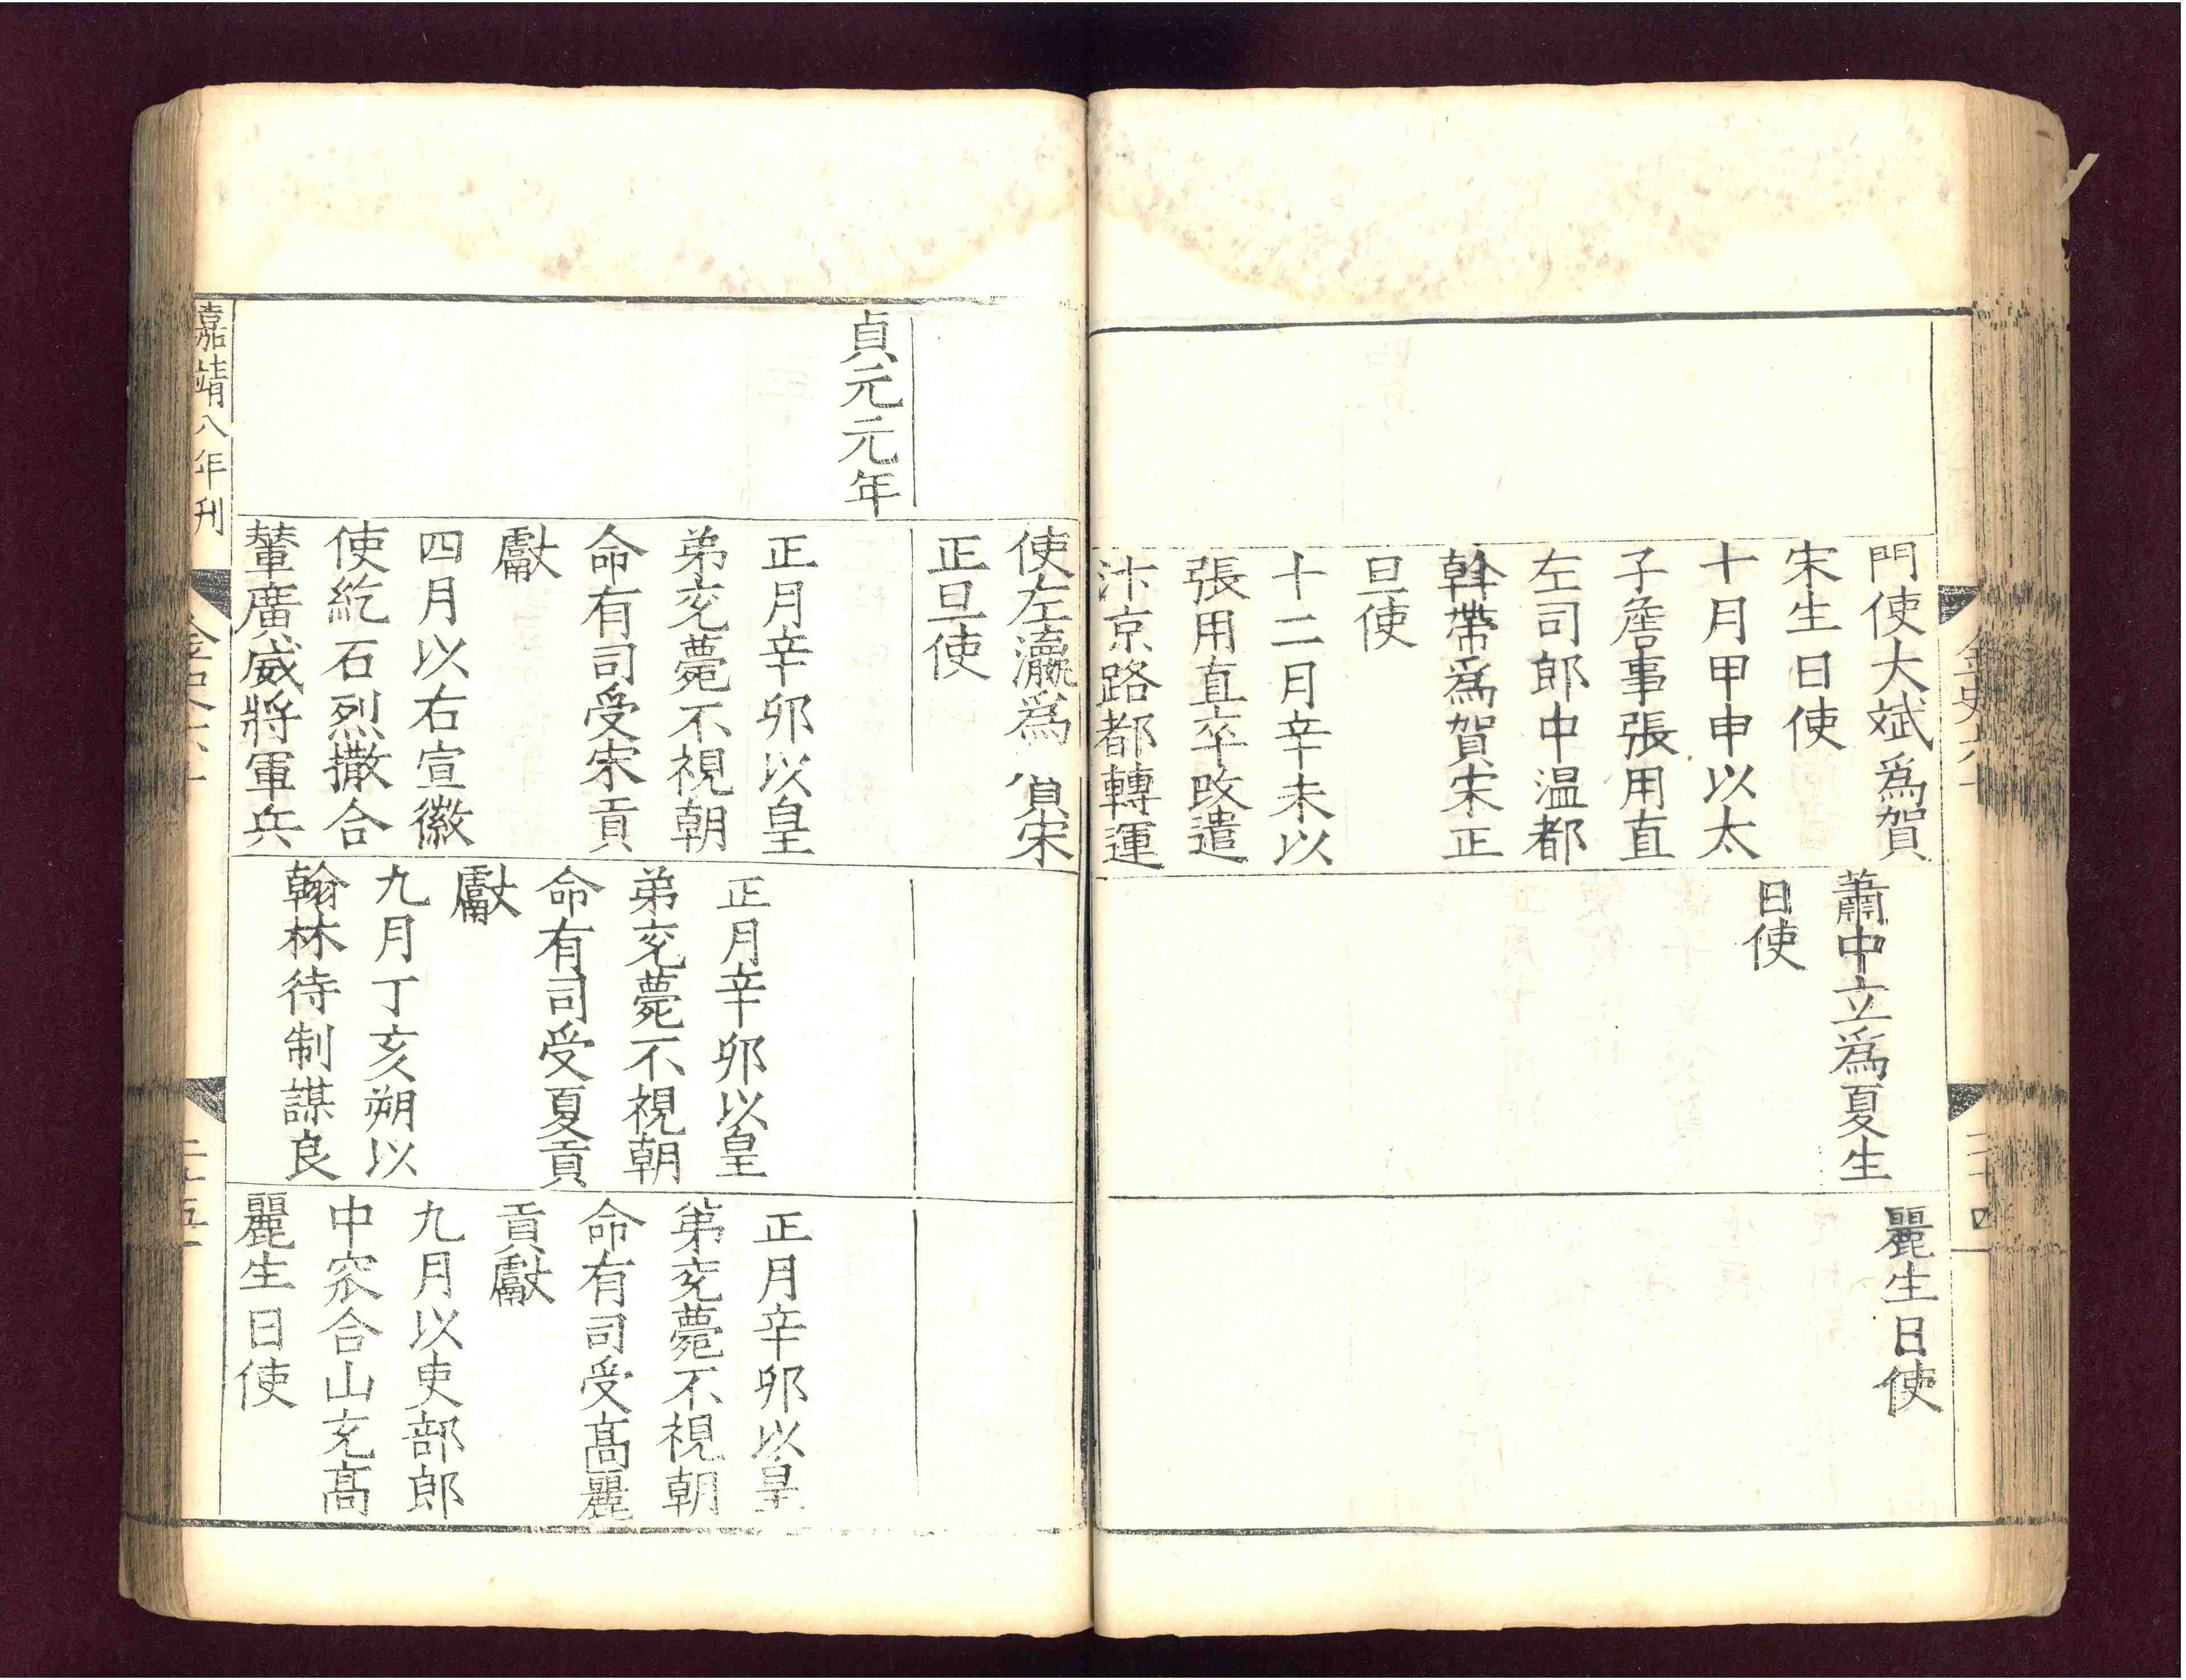 門使大斌爲賀
宋生日使
十月甲申以太
子詹事張用直
左司郎中温都
斡帶爲賀宋正
旦使
十二月辛未以
張用直卒改遣
汴京路都轉運
蕭中立爲夏生
日使
麗生日使
金史六十
二十四
使左瀛爲賀宋
正旦使
貞元元年
正月辛卯以皇
弟兗薨不視朝
命有司受宋貢
獻
四月以右宣徽
使紇石烈撒合
輦廣威將軍兵
正月辛卯以皇
弟兗薨不視朝
命有司受夏貢
獻
九月丁亥朔以
翰林待制謀良
正月辛卯以皇
弟兗薨不視朝
命有司受髙麗
貢獻
九月以吏部郎
中窊合山充髙
麗生日使
嘉靖八年刊
金史六十
二十五